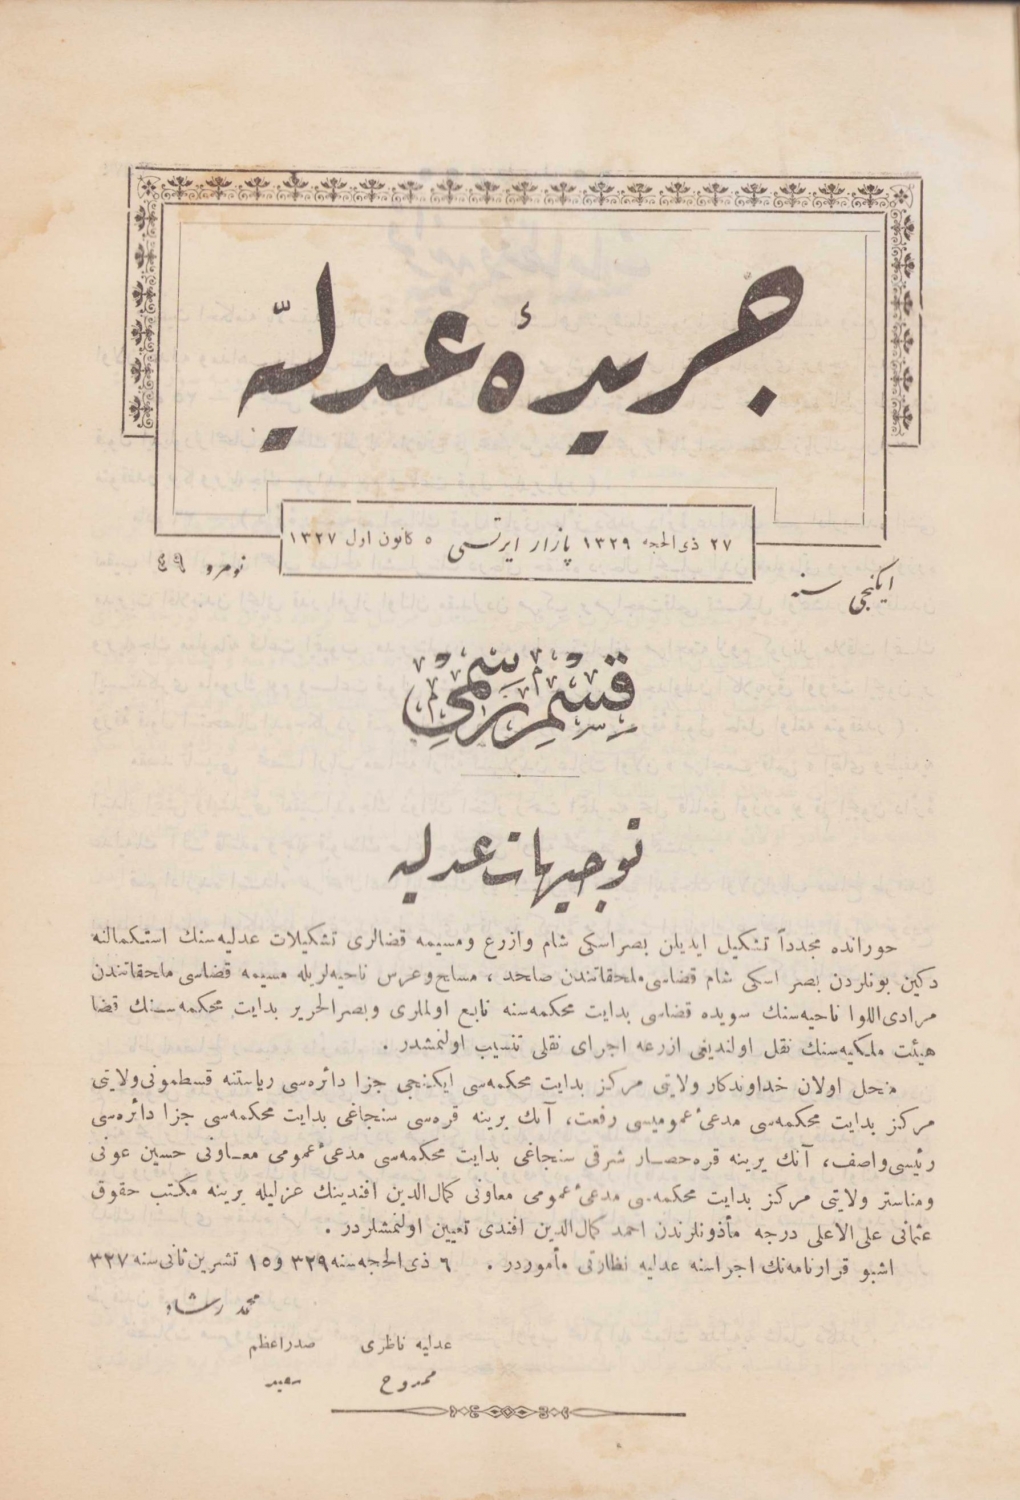 جریدهٔ عدلیّه
٢٧ ذی‌الحجه ١٣٢٩ پازار ایرتسی ٥ کانون اول ١٣٢٧
ایکنجی سنه
نومرو ٤٩
قسم رسمی
توجیهات عدلیه
حورانده مجدداً تشکیل ایدیلن بصر اسکی شام وازرع ومسیمه قضالری تشکیلات عدلیه‌سنك استکمالنه
دکین بونلردن بصر اسکی شام قضاسی ملحقاتندن صلخد ، مسایح وعرس ناحیه‌لریله مسیمه قضاسی ملحقاتندن
مرادی‌اللوا ناحیه‌سنك سویده قضاسی بدایت محکمه‌سنه تابع اولملری وبصرالحریر بدایت محکمه‌سنك قضا
هیئت ملکیه‌سنك نقل اولندیغی ازرعه اجرای نقلی تنسیب اولنمشدر .
منحل اولان خداوندکار ولایتی مرکز بدایت محکمه‌سی ایکنجی جزا دائره‌سی ریاستنه قسطمونی ولایتی
مرکز بدایت محکمه‌سی مدعیٔ عمومیسی رفعت، آنك یرینه قره‌سی سنجاغی بدایت محکمه‌سی جزا دائره‌سی
رئیسی واصف، آنك یرینه قره‌حصار شرقی سنجاغی بدایت محکمه‌سی مدعیٔ عمومی معاونی حسین عونی
ومناستر ولایتی مرکز بدایت محکمه‌سی مدعیٔ عمومی معاونی کمال‌الدین افندینك عزلیله یرینه مکتب حقوق
عثمانی علی‌الاعلی درجه مأذونلرندن احمد کمال‌الدین افندی تعیین اولنمشلردر .
اشبو قرارنامه‌نك اجراسنه عدلیه نظارتی مأموردر . ٦ ذی‌الحجه سنه ٣٢٩ و ١٥ تشرین ثانی سنه ٣٢٧
محمد رشاد
عدلیه ناظری صدراعظم
ممدوح سعید